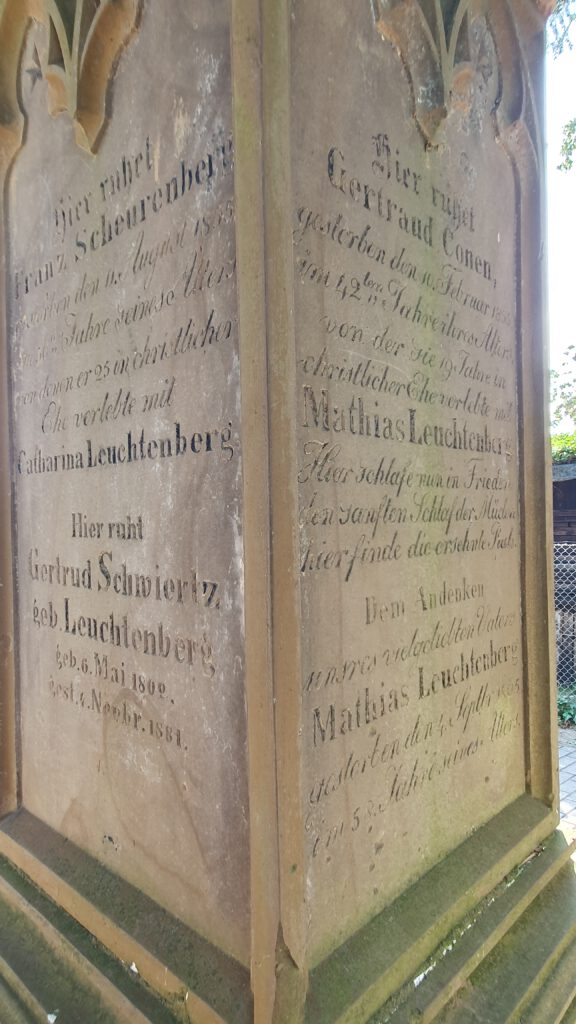 Hier ruhet
Franz Scheurenberg
gestorben den 11. August 1835
Jahre seines Alters
von denen er 25 in christlicher
Ehe verlebte mit
Catharina Leuchtenberg.
Hier ruht
Gertrud Schmiertz,
geb. Leuchtenberg
geb. 6. Mai 1802.
gest. 4. Novbr. 1861.
Hier ruhet
Gertraud Conen,
gestorben den 10. Februar
im 42ten Jahre ihres Alters
von der sie 19 Jahre in
christlicher Ehe verlebte mit
Mathias Leuchtenberg
Hier schlafe nun in Frieden
den sanften Schlaf der Müden
hier finde die ersehnte Ruh.
Dem Andenken
unsres vielgeliebten Vaters
Mathias Leuchtenberg
gestorben den 4. Septbr
im Jahre seines Alters.